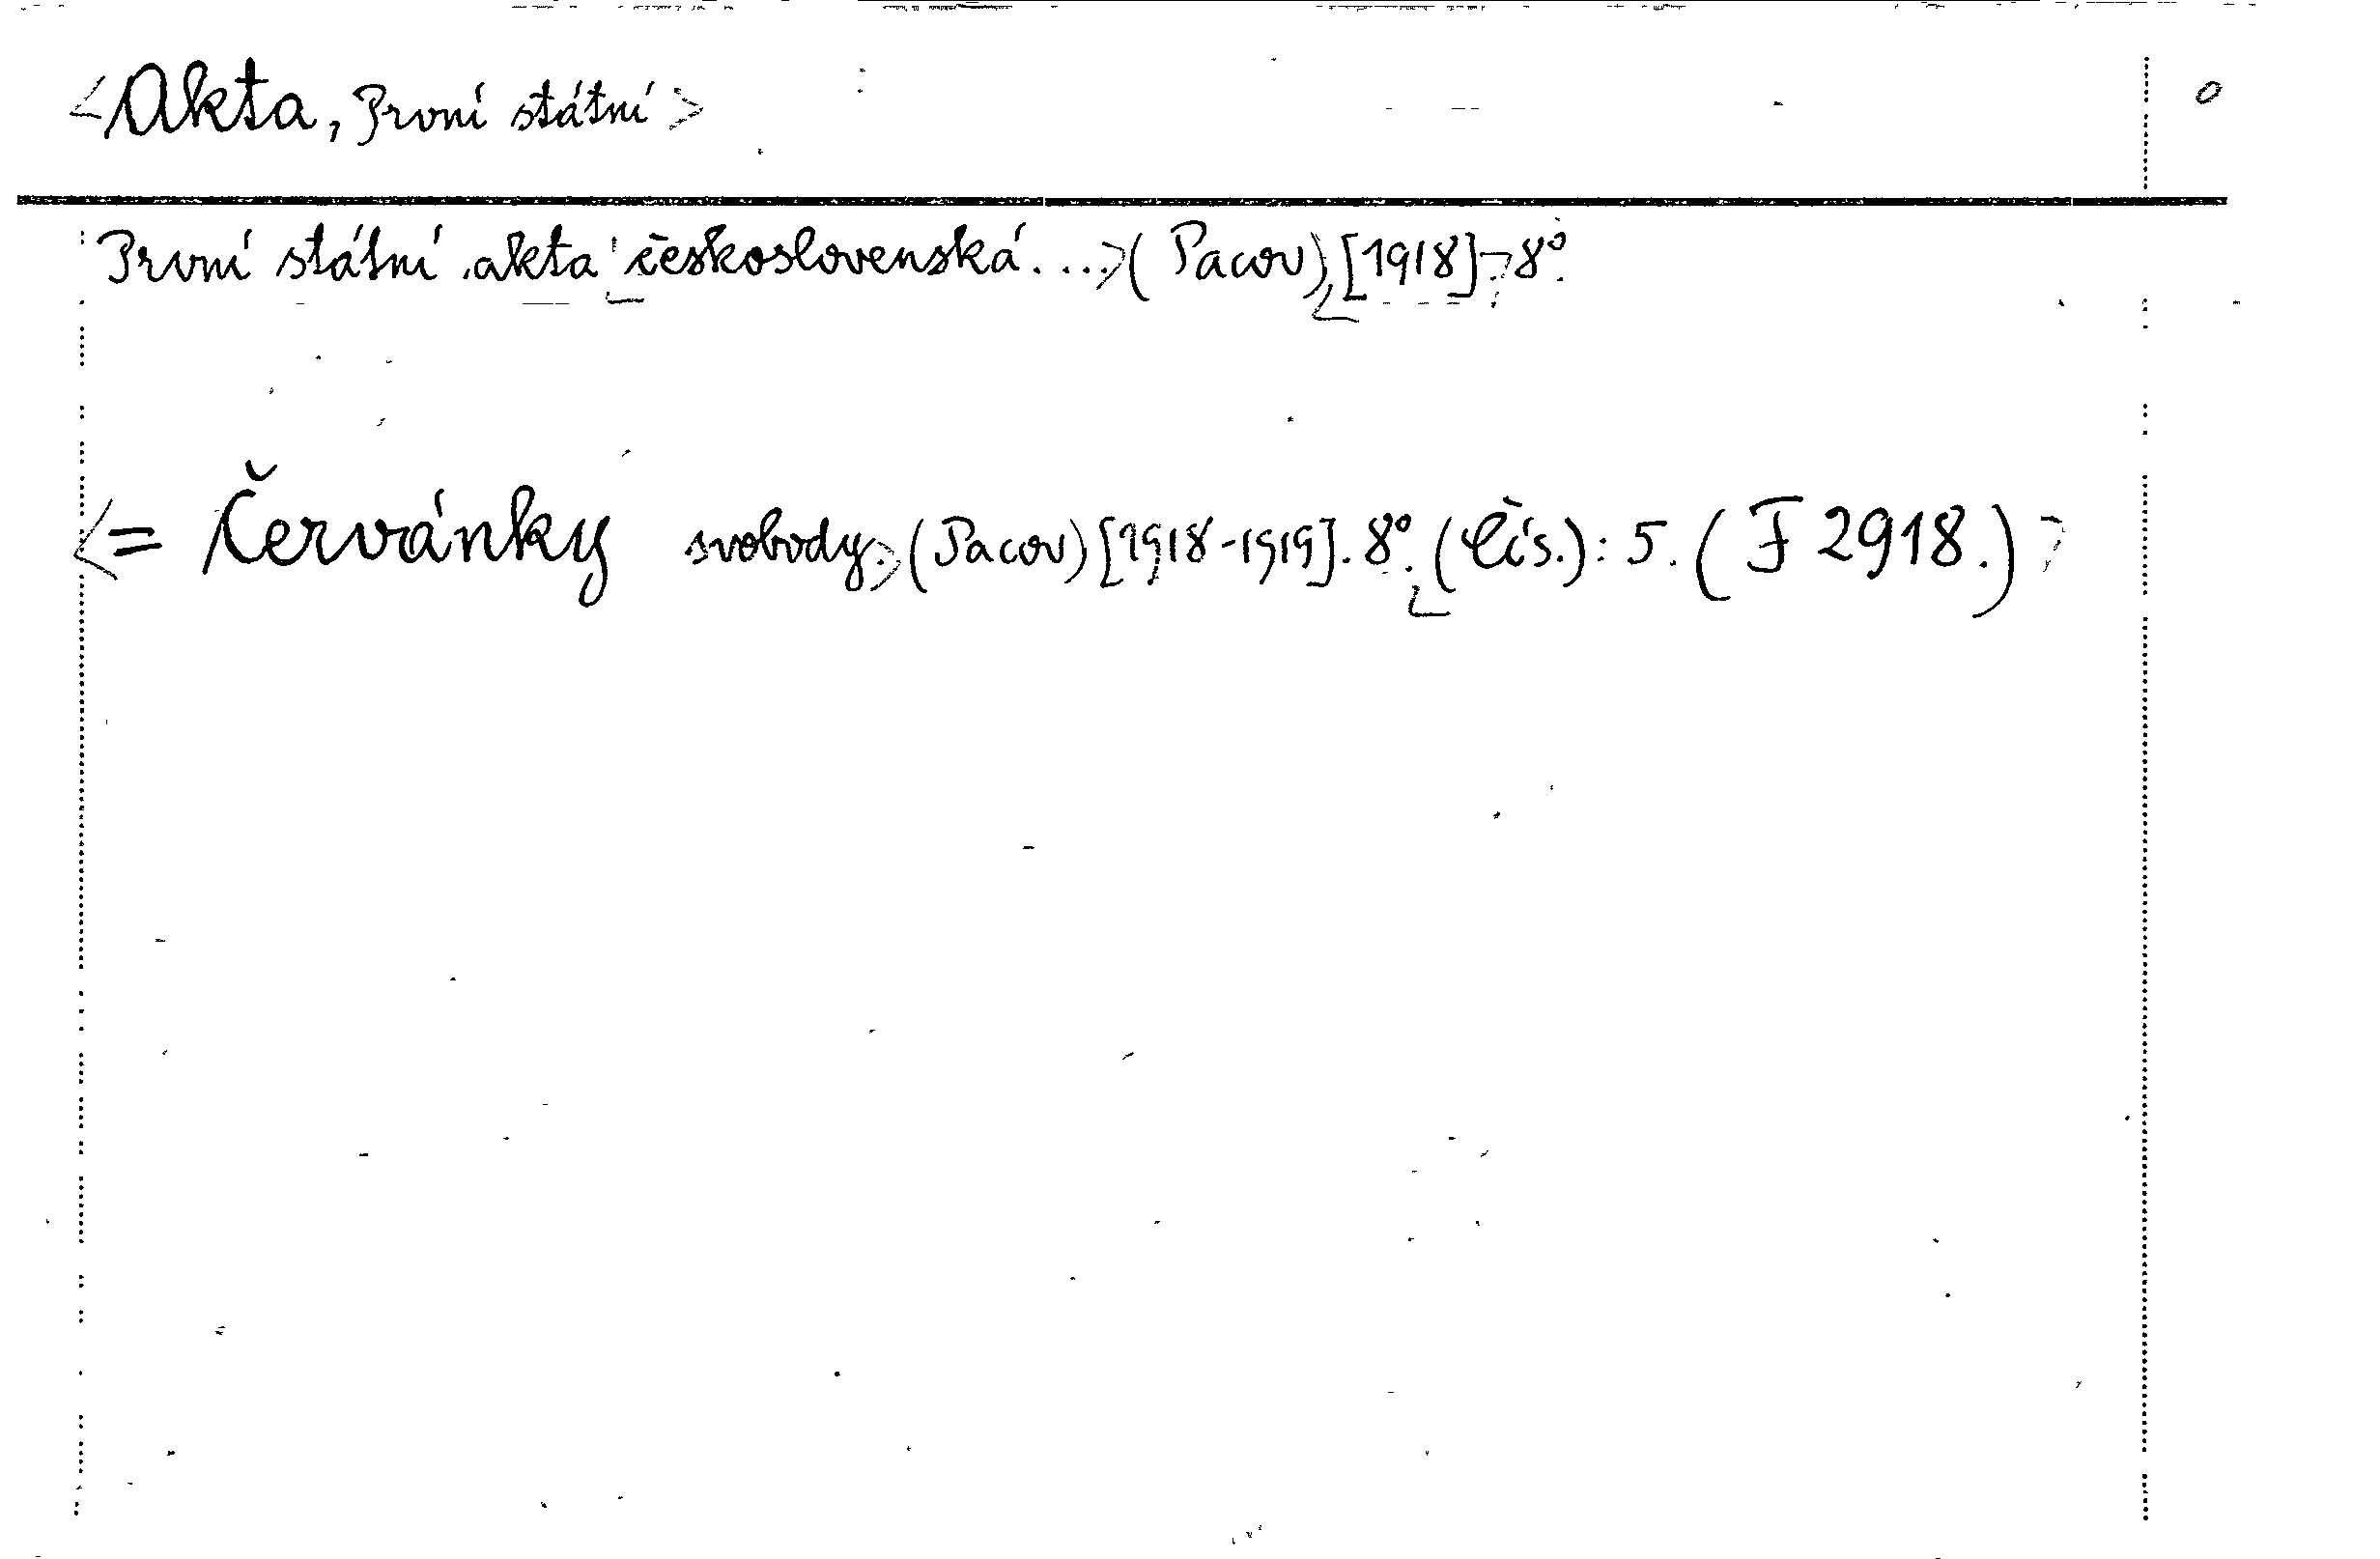 <Akta, První státní> 0
První státní akta československá....>(Pacov)<[1918].>8°.
<= Červánky svobody.>(Pacov)[1918-1919]. 8°.<(Čís.): 5. (F 2918.)>